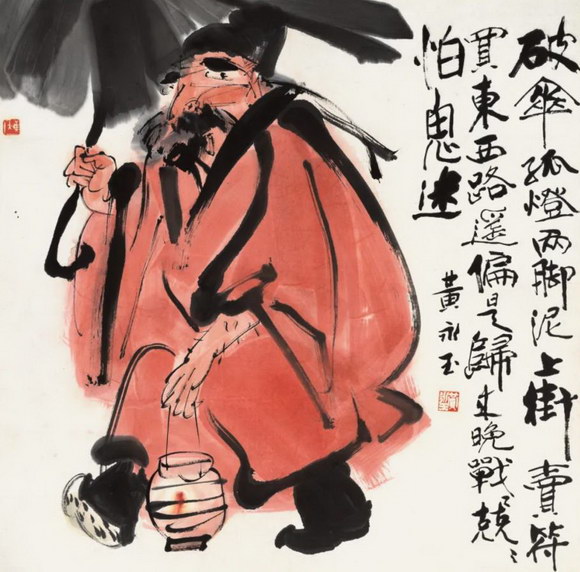 破傘孤燈兩脚泥上街賣符
買東西路遥偏是歸来晚戰〻兢〻
怕鬼迷
黃永玉